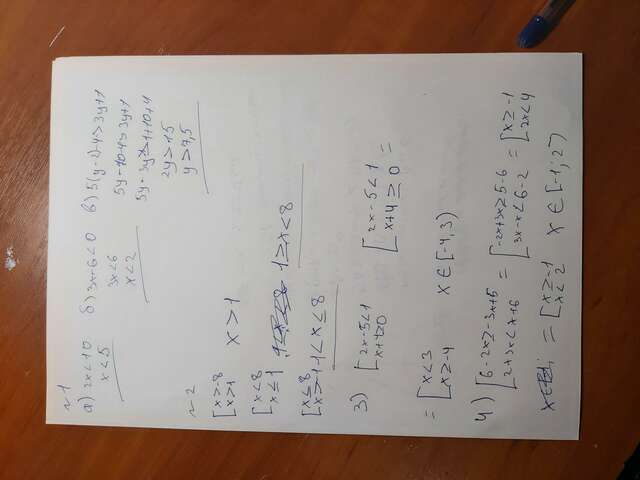 №1
а) 2x<10
x<5
б) 3x-6<0
3x<6
x<2
в) 5(y-2)-4>3y+1
5y-10-4>3y+1
5y-3y>1+10+4
2y>15
y>7,5
№2
[x>-8
x>1
x>1
[x<8
x≤1
1≥x<8
[x≤8
x>-1
-1<x≤8
3) [2x-5<1
x+4≥0
[2x-5<1
x+4≥0 =
= [x<3
x≥-4
x∈[-4,3)
4) [6-2x≥-3x+5
2+3x<x+6
= [-2x+3x≥5-6
3x-x<6-2
= [x≥-1
2x<4
= [x≥-1
x<2
x∈[-1;2)